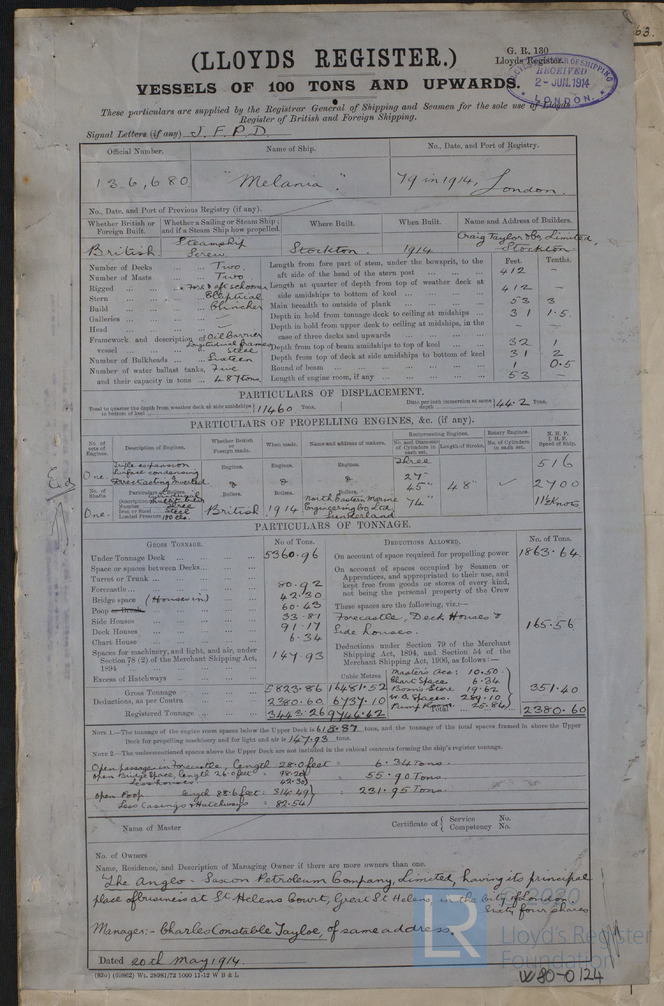 63.
(LLOYDS REGISTER.)
G. R. 130
Lloyds Register.
RECEIVED
2-JUN.1914
LONDON.
VESSELS OF 100 TONS AND UPWARDS.
These particulars are supplied by the Registrar General of Shipping and Seamen for the sole use of Lloyds
Register of British and Foreign Shipping.
Signal Letters (if any) J. F. P. D.
Official Number. Name of Ship. No., Date, and Port of Registry.
136,680 "Melania". 79 in 1914, London.
No., Date, and Port of Previous Registry (if any).
Whether British or Foreign Built. Whether a Sailing or Steam Ship; and if a Steam Ship how propelled. Where Built. When Built. Name and Address of Builders.
British. Steamship Screw. Stockton. 1914 Craig Taylor & Co, Limited, Stockton
Feet. Tenths.
Number of Decks Two. Length from fore part of stem, under the bowsprit, to the aft side of the head of the stern post 412 —
Number of Masts Two
Rigged Fore & aft schooner Length at quarter of depth from top of weather deck at side amidships to bottom of keel 412 —
Stern Elliptical
Build Clincher Main breadth to outside of plank 53 3
Galleries — Depth in hold from tonnage deck to ceiling at midships 31 1.5
Head — Depth in hold from upper deck to ceiling at midships, in the case of three decks and upwards — —
Framework and description of vessel Oil Carrier Longitudinal frames Steel Depth from top of beam amidships to top of keel 32 1
Number of Bulkheads Sixteen Depth from top of deck at side amidships to bottom of keel 31 2
Number of water ballast tanks, Five Round of beam 1 0.5
and their capacity in tons 487 tons. Length of engine room, if any 53 —
PARTICULARS OF DISPLACEMENT.
Total to quarter the depth from weather deck at side amidships to bottom of keel 11460 Tons. Ditto per inch immersion at same depth 44.2 Tons.
PARTICULARS OF PROPELLING ENGINES, &c. (if any).
No. of sets of Engines. Description of Engines. Whether British or Foreign made. When made. Name and address of makers. Reciprocating Engines. Rotary Engines. N. H. P. I. H. P. Speed of Ship.
No. and Diameter of Cylinders in each set. Length of Stroke. No. of Cylinders in each set.
One. Triple expansion Surface condensing Direct acting Inverted Engines. Engines. Engines. Three 27" 45" 74" 48" 516 2700 11½ Knots
No. of Shafts One. Particulars of Boilers. Description Number Three Iron or Steel Steel Loaded Pressure 180 lbs. Boilers. British Boilers. 1914 Boilers. North Eastern Marine Engineering Co, Ltd, Sunderland
PARTICULARS OF TONNAGE.
GROSS TONNAGE. No. of Tons. DEDUCTIONS ALLOWED. No. of Tons.
Under Tonnage Deck 5360.96 On account of space required for propelling power 1863.64
Space or spaces between Decks On account of spaces occupied by Seamen or Apprentices, and appropriated to their use, and kept free from goods or stores of every kind, not being the personal property of the Crew
Turret or Trunk
Forecastle 80.92
Bridge space (Houses in) 42.30
Poop or Break 60.43 These spaces are the following, viz.:—
Side Houses 33.81 Forecastle, Deck Houses & Side houses. 165.56
Deck Houses 91.17
Chart House 6.34
Spaces for machinery, and light, and air, under Section 78 (2) of the Merchant Shipping Act, 1894 147.93 Deductions under Section 79 of the Merchant Shipping Act, 1894, and Section 54 of the Merchant Shipping Act, 1906, as follows:—
Excess of Hatchways Cubic Metres Master's Acc: 10.50
Chart Space 6.34
Gross Tonnage 5823.86 16481.52 Bosn's Store 19.62 351.40
Deductions, as per Contra 2380.60 6737.10 W. B. Spaces. 289.10
Registered Tonnage 3443.26 9744.42 Pump Room. 25.84 Total 2380.60
NOTE 1.—The tonnage of the engine room spaces below the Upper Deck is 618.87 tons, and the tonnage of the total spaces framed in above the Upper
Deck for propelling machinery and for light and air is 147.93 tons.
NOTE 2.—The undermentioned spaces above the Upper Deck are not included in the cubical contents forming the ship's register tonnage.
Open passage in Forecastle, Length 28.0 feet = 6.34 Tons.
Open Bridge Space, Length 26.0 feet = 98.20
Less houses 42.30 = 55.90 Tons.
Open Poop length 88.6 feet = 314.49
Less Casings & Hutchways = 82.54 = 231.95 Tons.
Name of Master Certificate of { Service No. Competency No.
No. of Owners
Name, Residence, and Description of Managing Owner if there are more owners than one.
The Anglo-Saxon Petroleum Company, Limited, having its principal
place of business at St Helens Court, Great St Helens, in the City of London.
Sixty four shares
Manager:- Charles Constable Tayloe, of same address.
Dated 20th May 1914.
(83o) (50862) Wt. 28081/72 1000 11-12 W B & L
LR
© 2020
Lloyd's Register
Foundation
W80-0124